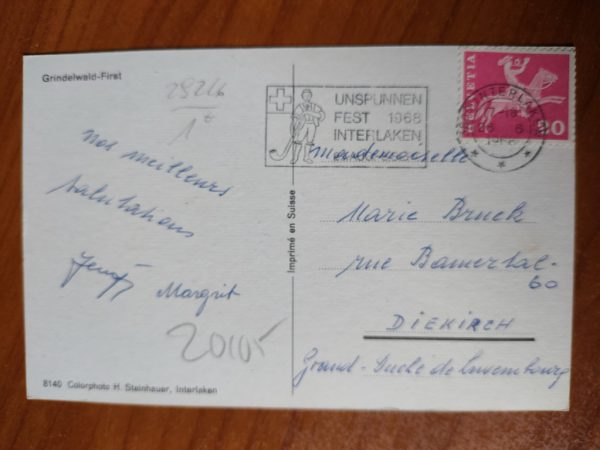 Grindelwald-First
29246
1€
nos meilleurs
salutations
Margrit
20105
8140 Colorphoto H. Steinhauer, Interlaken
Imprimé en Suisse
UNSPUNNEN
FEST 1968
INTERLAKEN
HELVETIA
20
INTERLAKEN
Mademoiselle
Marie Bruck
rue Bamertal-
60
DIEKIRCH
Grand-Duché de Luxembourg